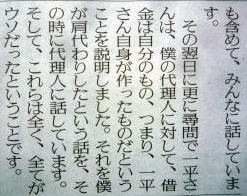 も含めて、みんなに話しています。
その翌日に更に尋問で一平さ
んは、僕の代理人に対して、借
金は自分のもの、つまり、一平
さん自身が作ったものだという
ことを説明しました。それを僕
が肩代わりしたという話を、そ
の時に代理人に話しています。
そして、これらは全く、全てが
ウソだったということです。